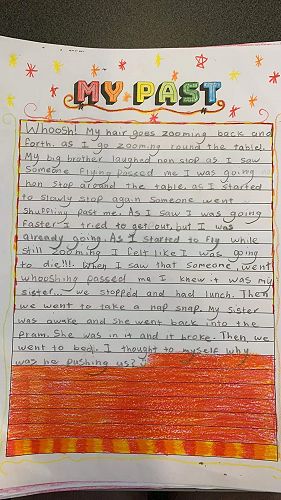 MY PAST
Whoosh! My hair goes zooming back and
forth. as I go zooming round the table.
My big brother laughed non stop as I saw
someone flying passed me I was going
non stop around the table. as I started
to slowly stop again someone went
shuffling past me. As I saw I was going
faster I tried to get out, but I was
already going. As I started to fly while
still zooming I felt like I was going
to die!!!. When I saw that someone went
whooshing passed me I knew it was my
sister. we stopped and had lunch. Then
we went to take a nap snap. My sister
was awake and she went back into the
pram. She was in it and it broke. Then we
went to bed. I thought to myself why
was he pushing us?